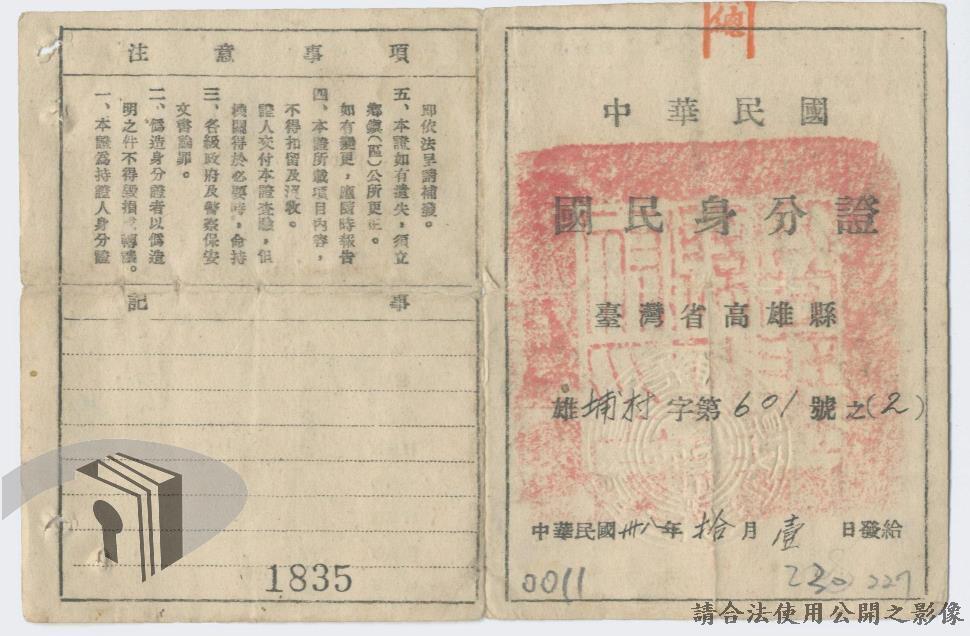 總
中華民國
國民身分證
臺灣省高雄縣
雄埔村字第601號之(2)
中華民國卅八年拾月壹日發給
0011
230 227
注意事項
一、本證為持證人身分證
明之件不得毀損或轉讓。
二、偽造身分證者以偽造
文書論罪。
三、各級政府及警察保安
機關得於必要時,命持
證人交付本證查驗,但
不得扣留及沒收。
四、本證所載項目內容,
如有變更,應隨時報告
鄉鎮(區)公所更正。
五、本證如有遺失,須立
即依法呈請補發。
記事
1835
請合法使用公開之影像